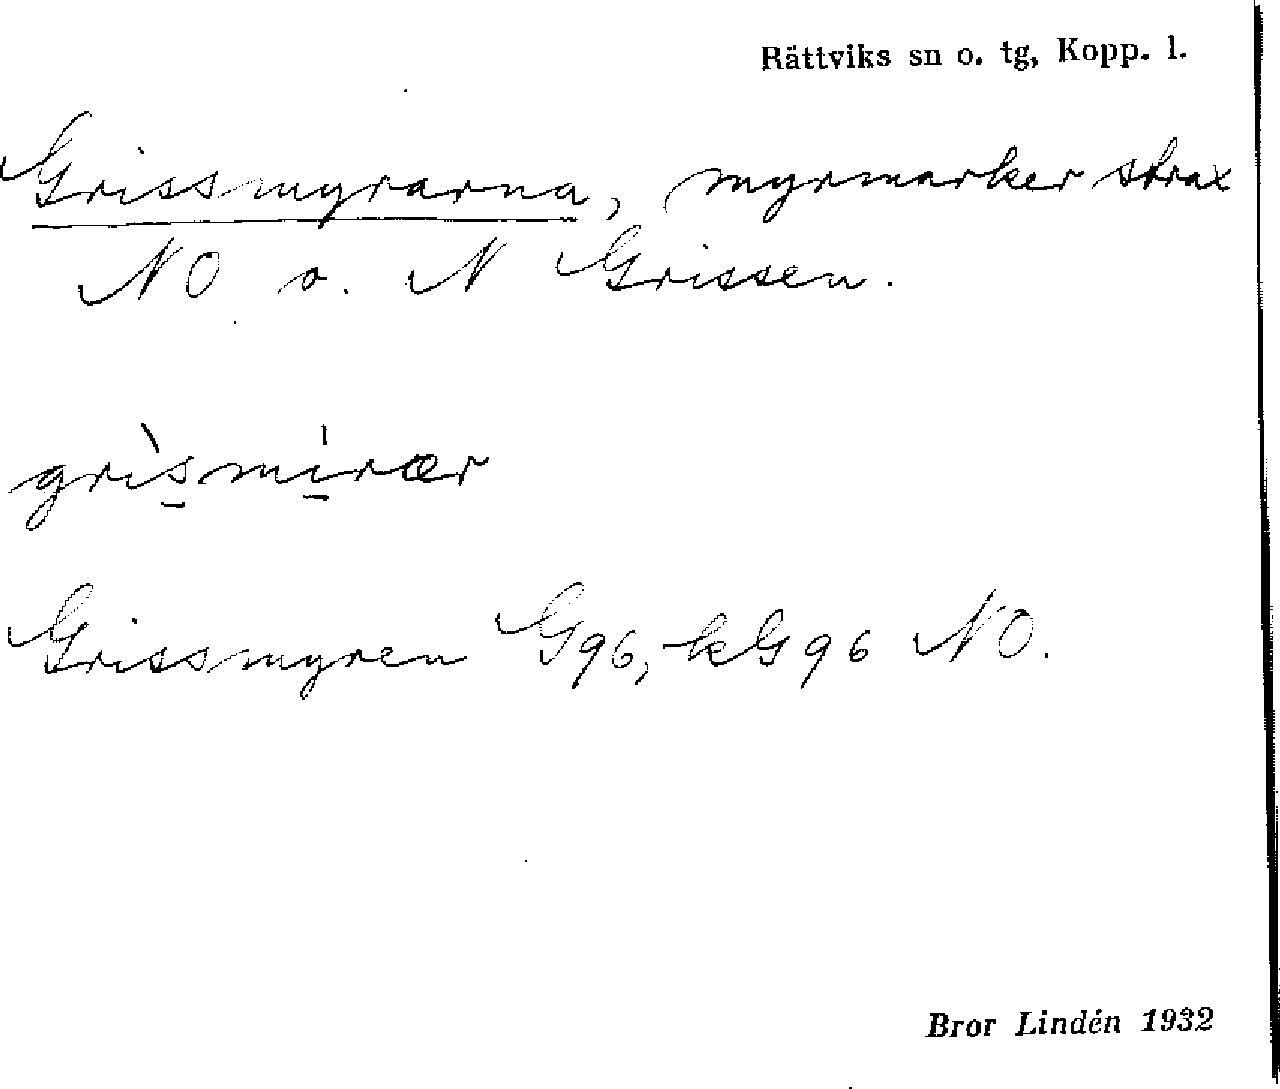 Rättviks sn o. tg, Kopp. l.
Grissmyrarna, myrmarker strax
NO o. N Grissen.
grìs̠mi̠rær
Grissmyren G96, kG96 NO.
Bror Lindén 1932